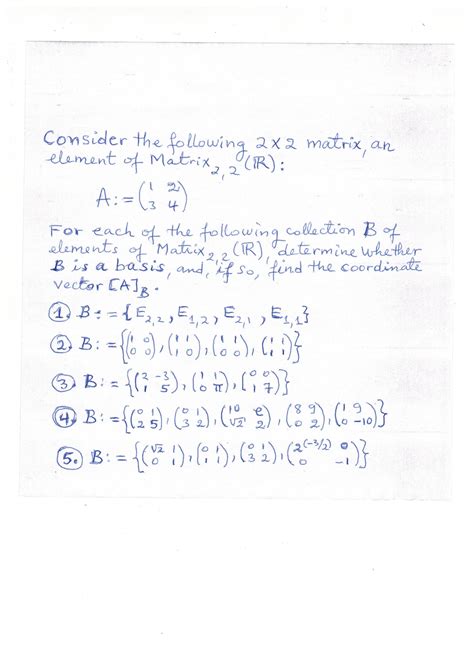 Consider the following 2x2 matrix, an
element of Matrix₂,₂(ℝ):
A:=(1 2; 3 4)
For each of the following collection B of
elements of Matrix₂,₂(ℝ), determine whether
B is a basis, and, if so, find the coordinate
vector [A]_B.
① B:={E₂,₂, E₁,₂, E₂,₁, E₁,₁}
② B:={(1 0; 0 0),(1 1; 1 0),(1 1; 0 0),(1 1; 1 1)}
③ B:={(2 -3; 1 5),(1 1; 0 π),(0 0; 1 7)}
④ B:={(0 1; 2 5),(0 1; 3 2),(10 e; √2 2),(8 9; 0 2),(1 9; 0 -10)}
⑤ B:={(√2 1; 0 1),(0 1; 1 1),(0 1; 3 2),(2^(-3/2) 0; 0 -1)}